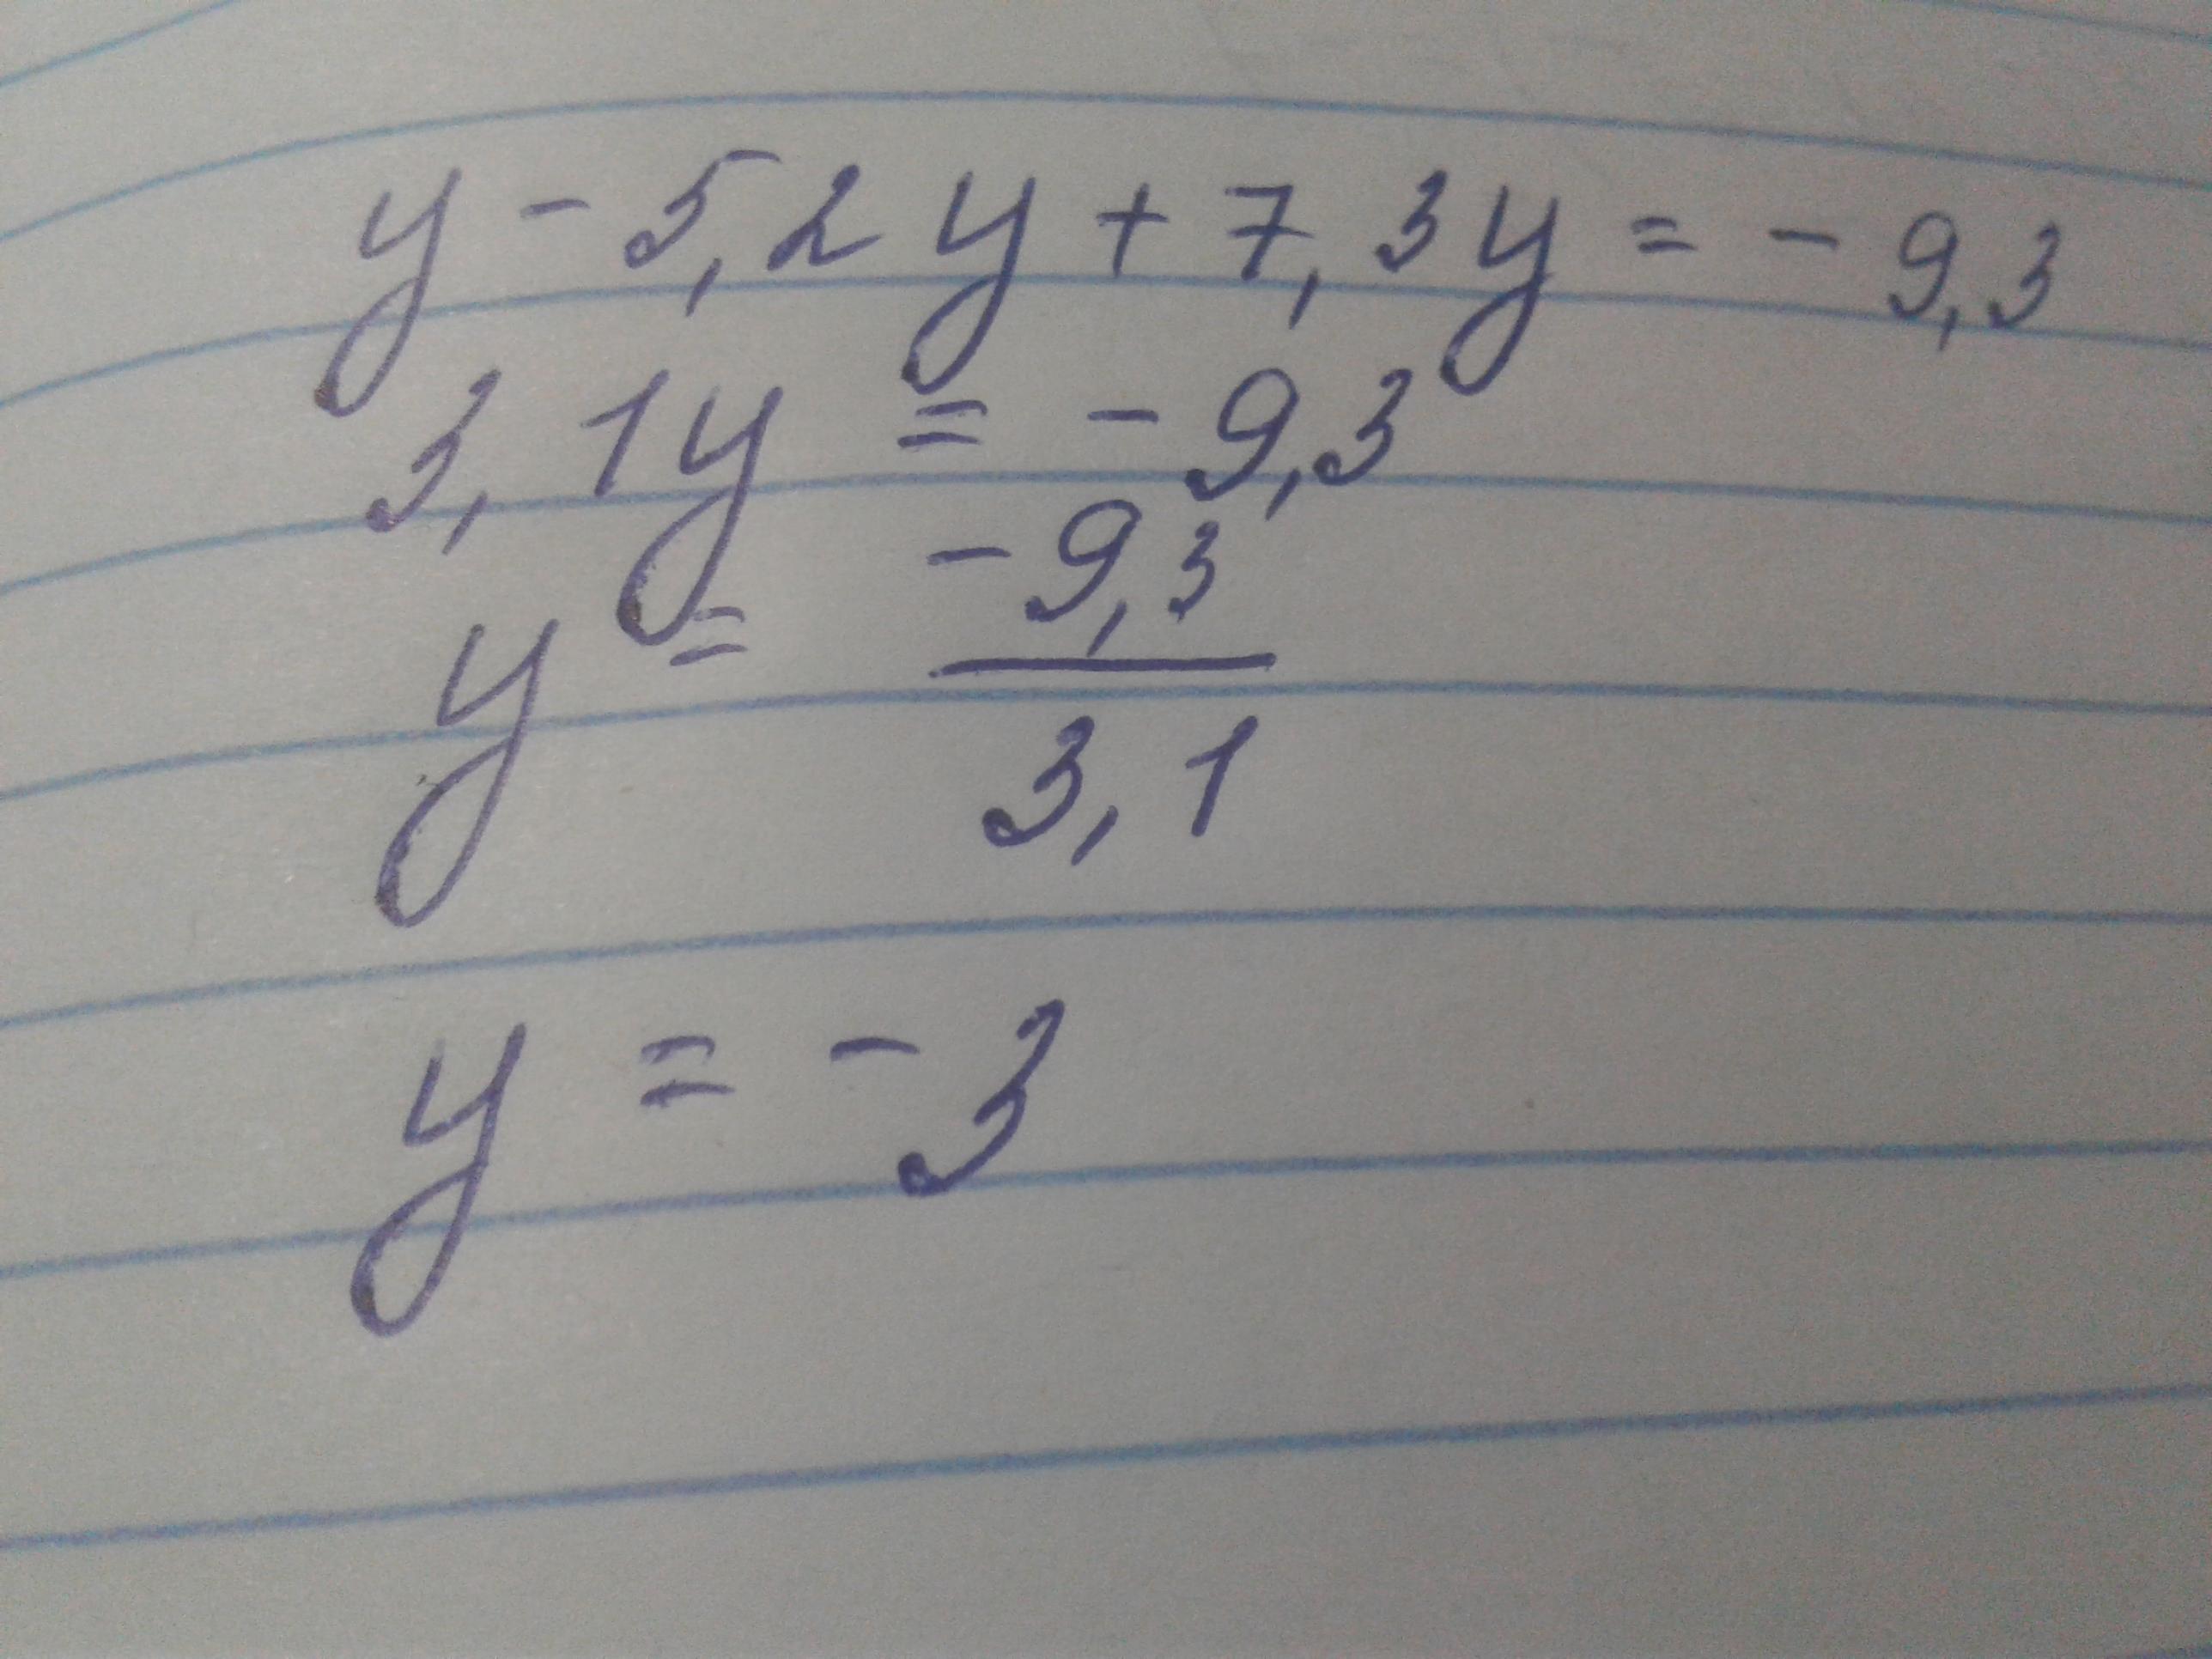 y - 5,2y + 7,3y = - 9,3
3,1y = - 9,3
y = \frac{-9,3}{3,1}
y = - 3